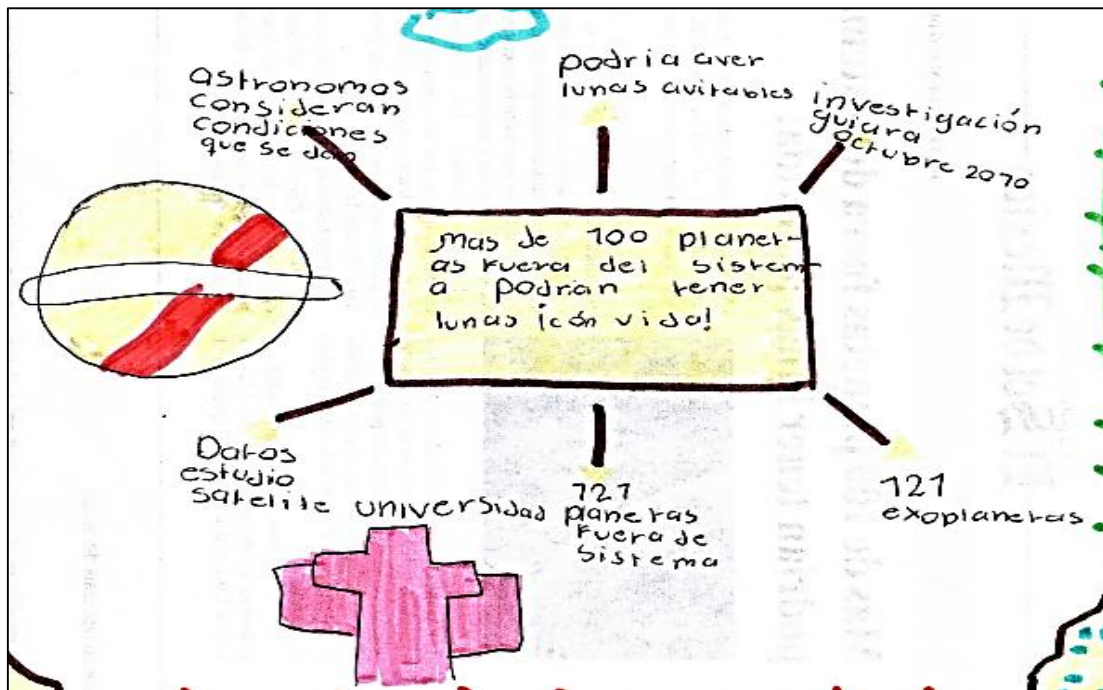 astronomos
consideran
condiciones
que se dan
podria aver
lunas avitables
investigación
guiara
octubre 2070
Mas de 100 planet-
as fuera del sistem-
a podran tener
lunas ¡cón vida!
Datos
estudio
satelite universidad
121
planetas
fuera de
sistema
121
exoplanetas